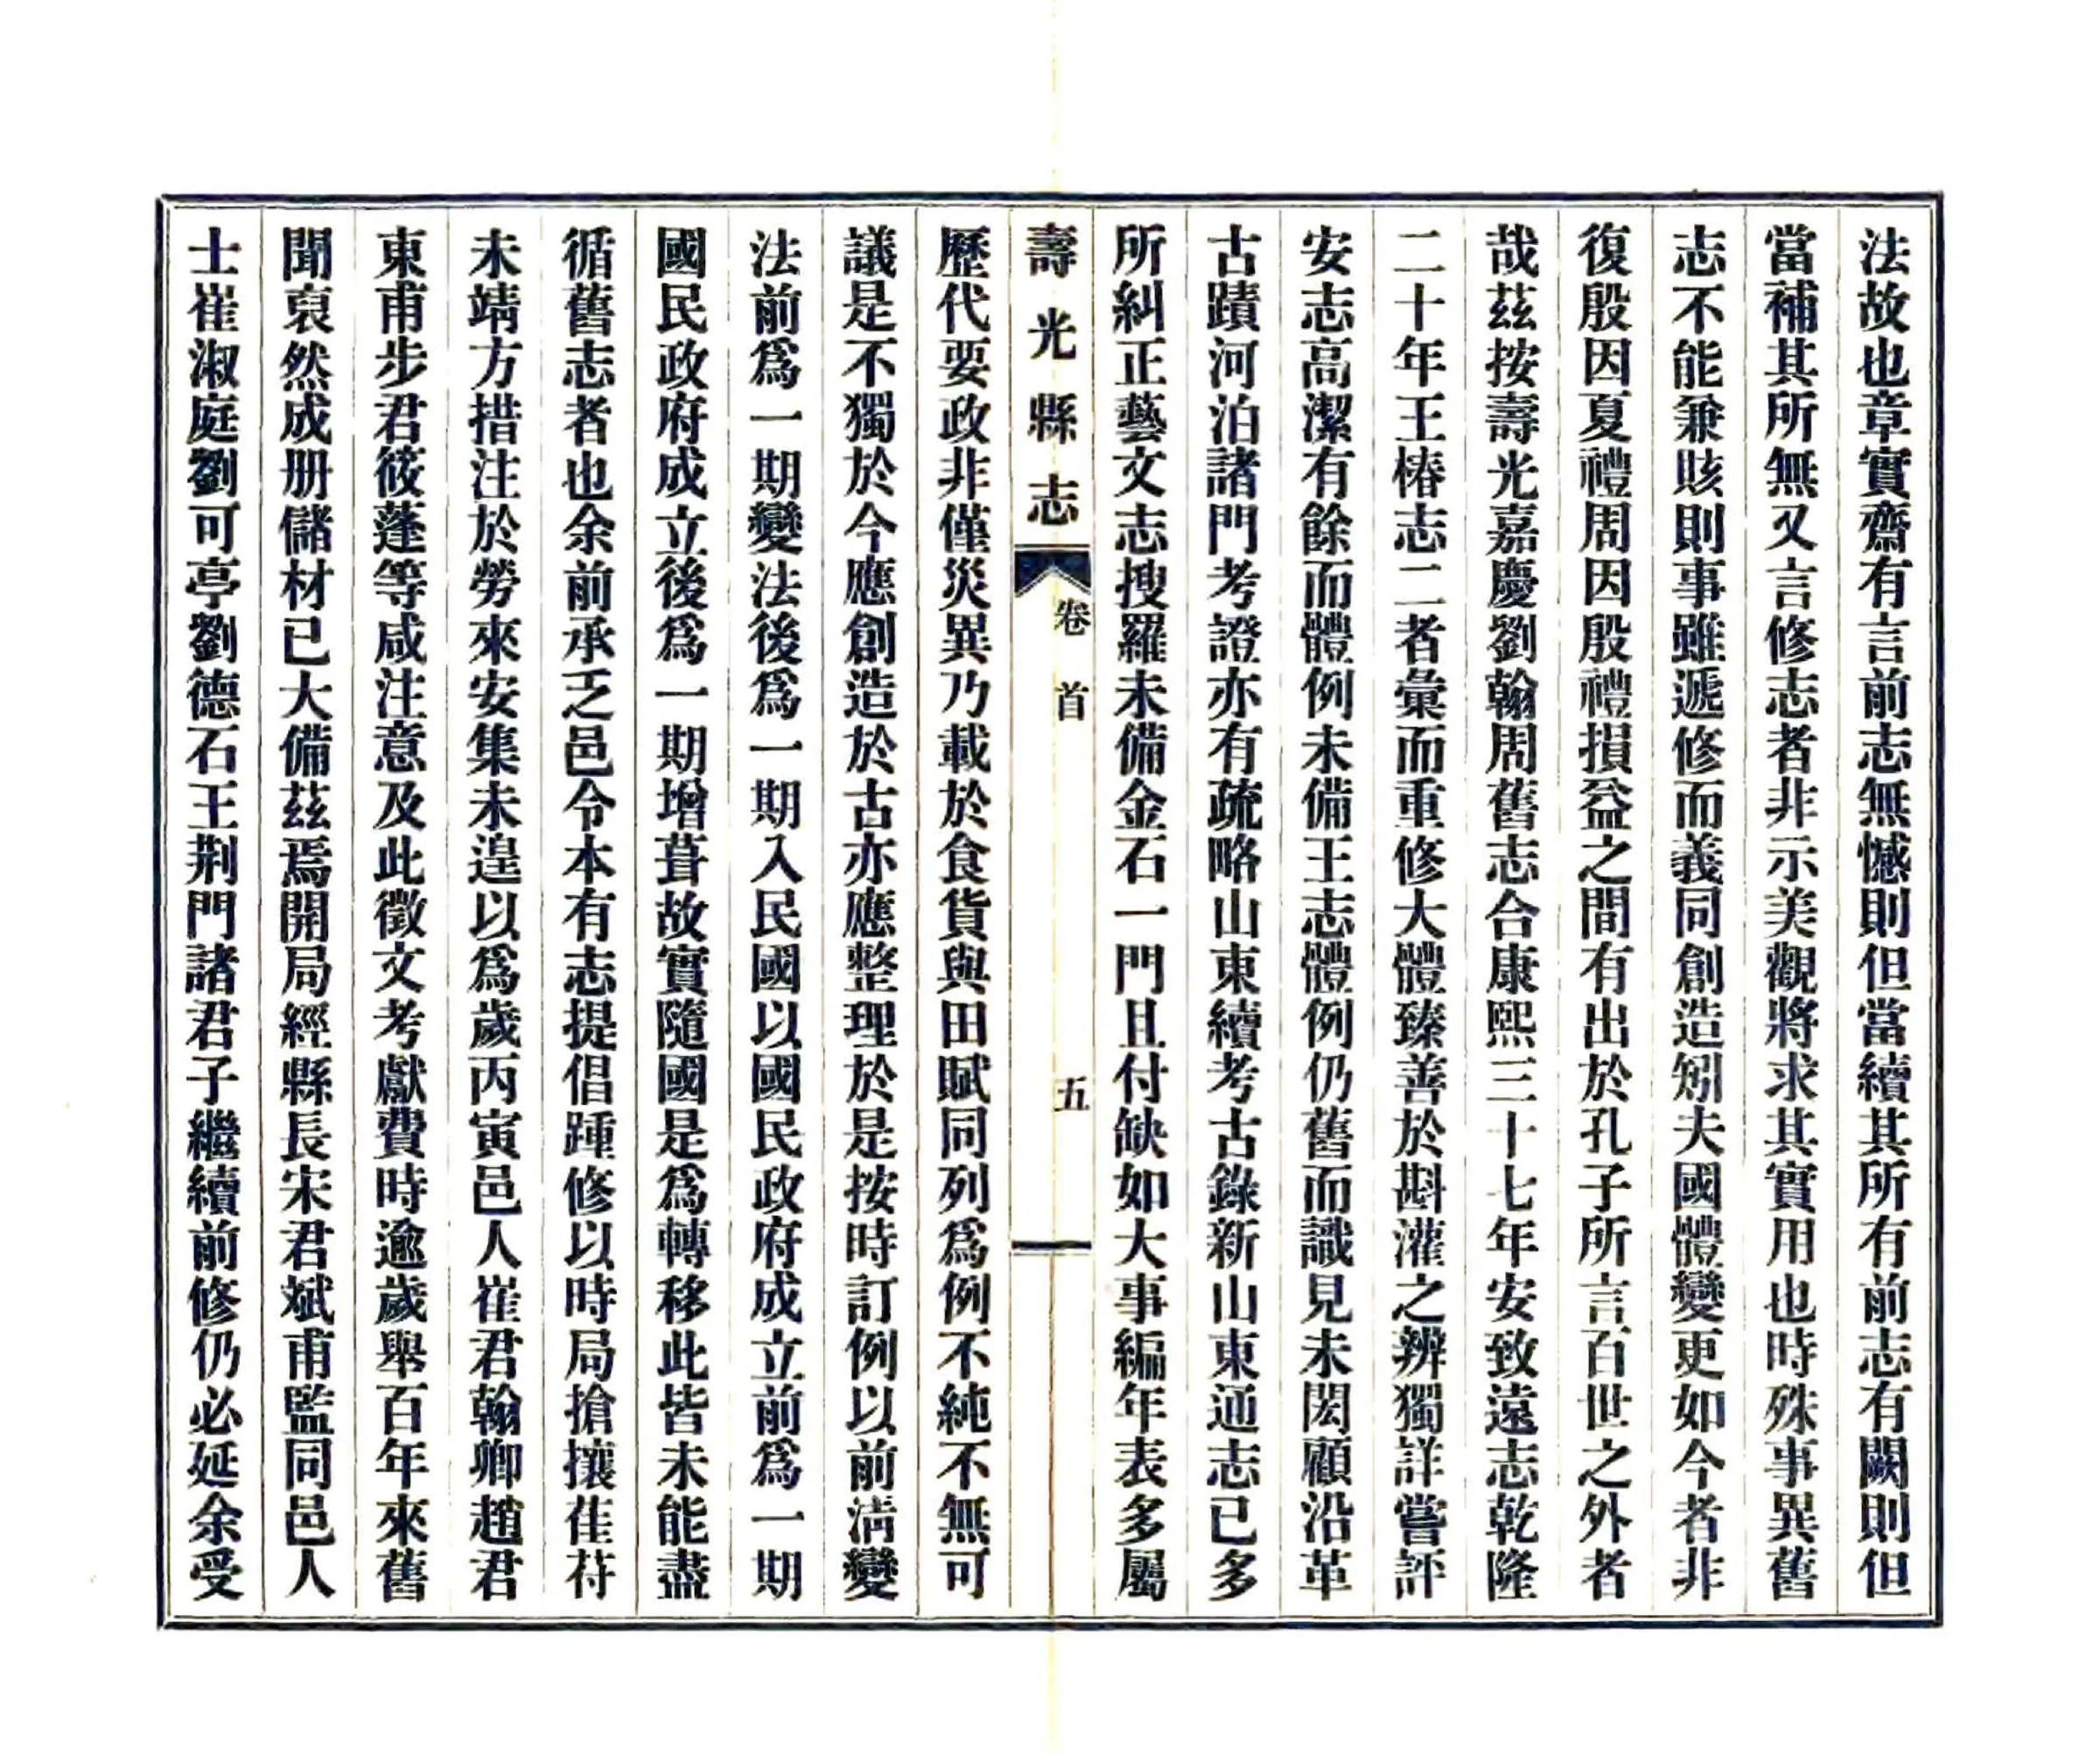 法故也章實齋有言前志無憾則但當續其所有前志有闕則但
當補其所無又言修志者非示美觀將求其實用也時殊事異舊
志不能兼賅則事雖遞修而義同創造矧夫國體變更如今者非
復殷因夏禮周因殷禮損益之間有出於孔子所言百世之外者
哉茲按壽光嘉慶劉翰周舊志合康熙三十七年安致遠志乾隆
二十年王椿志二者彙而重修大體臻善於斟灌之辨獨詳嘗評
安志高潔有餘而體例未備王志體例仍舊而識見未閎顧沿革
古蹟河泊諸門考證亦有疏略山東續考古錄新山東通志已多
所糾正藝文志搜羅未備金石一門且付缺如大事編年表多屬
壽光縣志
卷首
五
歷代要政非僅災異乃載於食貨與田賦同列為例不純不無可
議是不獨於今應創造於古亦應整理於是按時訂例以前淸變
法前為一期變法後為一期入民國以國民政府成立前為一期
國民政府成立後為一期增葺故實隨國是為轉移此皆未能盡
循舊志者也余前承乏邑令本有志提倡踵修以時局搶攘萑苻
未靖方措注於勞來安集未遑以為歲丙寅邑人崔君翰卿趙君
東甫步君筱蓬等咸注意及此徵文考獻費時逾歲舉百年來舊
聞裒然成册儲材已大備茲焉開局經縣長宋君斌甫監同邑人
士崔淑庭劉可亭劉德石王荆門諸君子繼續前修仍必延余受